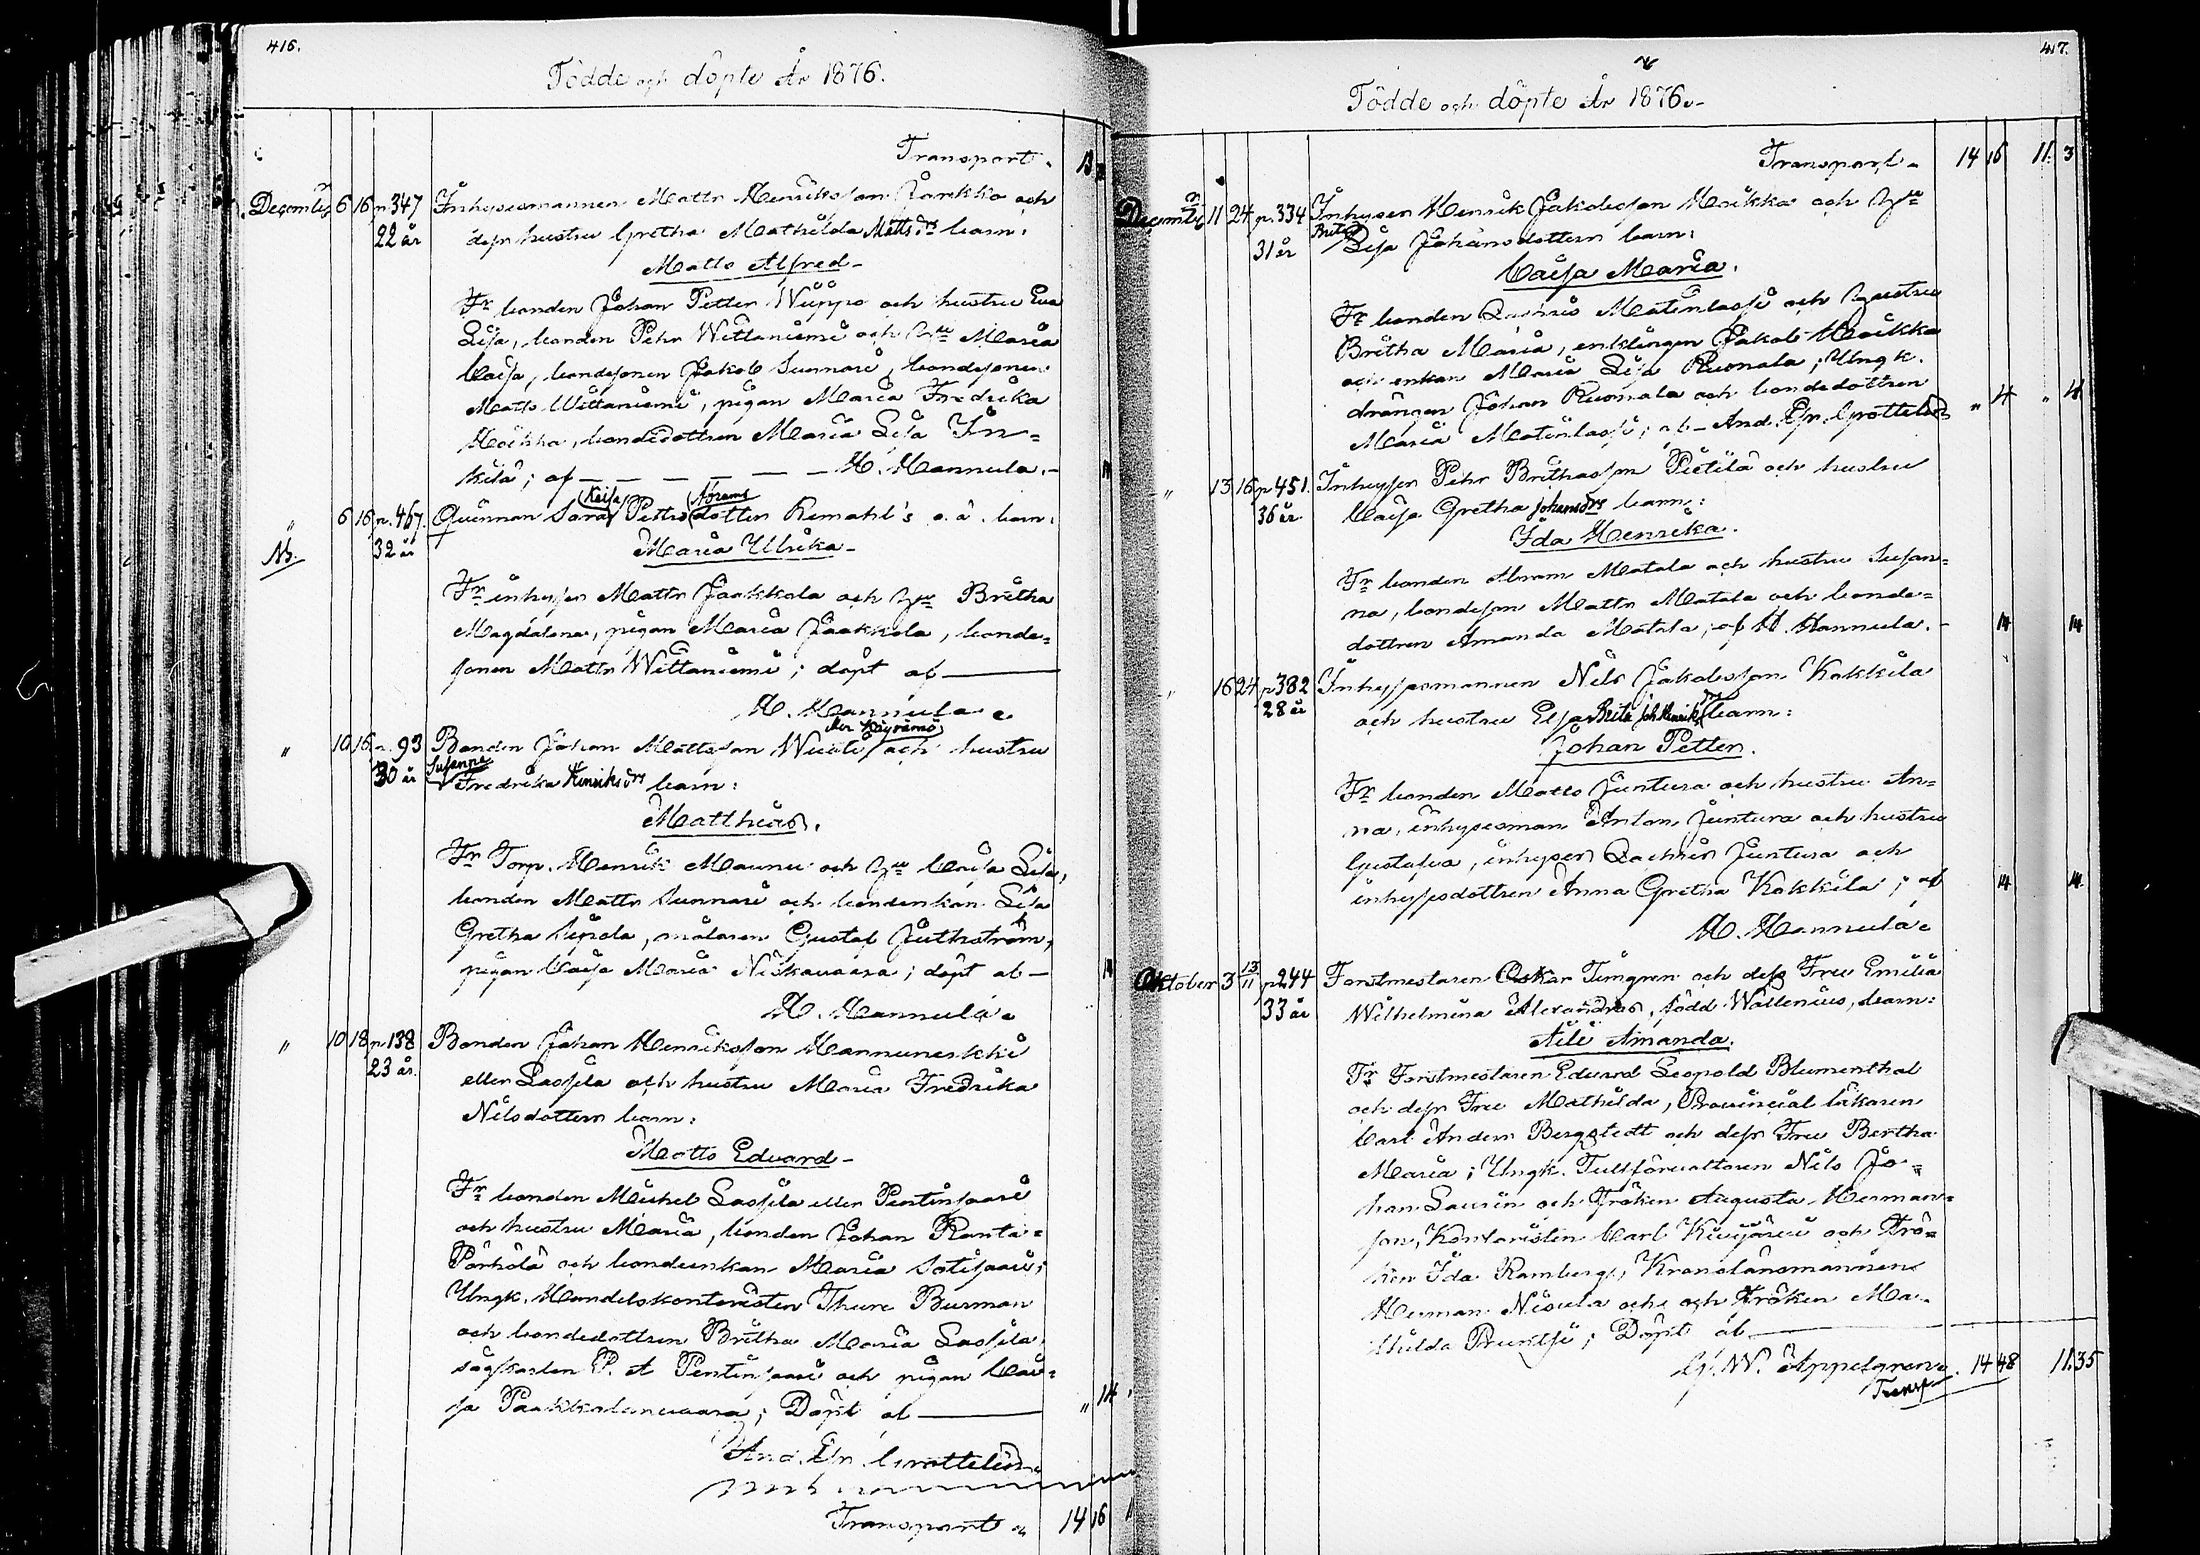 416.
Födde och döpte År 1876.
Transport.
Decembr 6 16 p. 347 Inhysesmannen Matts Henriksson Jarkko och
22 år dess hustru Gretha Mathilda Matts drs barn:
Matts Alfred
Fr bonden Johan Petter Wuppo och hustru Eva
Lisa, bonden Pehr Wittaniemi och Hu Maria
Caisa, bondesonen Jakob Sunnari, bondesonen
Matts Wittaniemi, pigan Maria Fredrika
Hoikka, bondedottren Maria Lisa In=
kilä; af H. Hannula.
" 6 16 p. 467. Qvinnan Sara Kaisa Petters Abrams dotter Remahl's o. ä. barn:
Nb. 32 år Maria Ulrika
Fr inhyses Matts Jaakkola och Hu Britha
Magdalena, pigan Maria Jaakkola, bonde=
sonen Matts Wittaniemi; döpt af
H. Hannula.
" 10 16 p. 93 Bonden Johan Mattsson och hustru
30 år Susanna Fredrika Henriks drs barn:
Matthias.
Fr Torp. Henrik Maunu och Hu Caisa Lisa,
bonden Matts Sunnari och bondenkan Lisa
Gretha Sipola, målaren Gustaf Juthström,
pigan Caisa Maria Niskavaara; döpt af
H. Hannula.
" 10 18 p. 138 Bonden Johan Henriksson Hannuneskki
23 år. eller Lassila och hustru Maria Fredrika
Nilsdotters barn:
Matts Edvard
Fr bonden Michel Lassila eller Pentinsaari
och hustru Maria, bonden Johan Ranta=
Pörhölä och bondeenkan Maria Sotisaari;
Ungk. Handelskontoristen Thure Burman
och bondedottren Britha Maria Lassila,
sågkarlen P. A Pentinsaari och pigan Cai=
sa Paakkolanvaara; Döpt af " 14
And. Er.
Transport 14 16
417.
Födde och döpte År 1876.
Transport 14 16 11. 3
Decembr 11 24 p. 334 Inhyses Henrik Jakobsson Hoikka och Hu
31 år Brita Lisa Johansdotters barn:
Caisa Maria.
Fr bonden Zachris Matinlassi och Hustru
Britha Maria, enklingen Jakob Hoikka
och enkan Maria Lisa Ruonala; Ungk.
drängen Johan Ruonala och bondedottren
Maria Matinlassi; af And. Er. " 4 " 4
" 13 16 p. 451. Inhyses Pehr Brithasson Pietilä och hustru
36 år Caisa Gretha Johans drs barn:
Ida Henrika.
Fr bonden Abram Matala och hustru Susan=
na, bondeson Matts Matala och bonde=
dottren Amanda Matala; af H. Hannula. 14 14
" 16 24 p. 382 Inhysesmannen Nils Jakobsson Kokkila
28 år och hustru Elsa Brita Joh. Henriks drs barn:
Johan Petter.
Fr bonden Matts Juntura och hustru An=
na, inhysesman Anton Juntura och hustru
Gustafva, inhyses Zachris Juntura och
inhysesdottren Anna Gretha Kokkila; af 14 14
H. Hannula.
Oktober 3 13/11 p. 244 Forstmestaren Oskar Timgren och dess Fru Emilia
33 år Wilhelmina Alexandra, född Wallenius, barn:
Aili Amanda.
Fr Forstmestaren Edvard Leopold Blumenthal
och dess Fru Mathilda, Provincial läkaren
Carl Anders Bergstedt och dess Fru Bertha
Maria; Ungk. Tullförvaltaren Nils Jo=
han Laurin och Fröken Augusta Herman=
son, Kontoristen Carl Kivijärvi och Frö=
ken Ida Ramberg, Kronolänsmannen
Herman Nisula och och Fröken Ma=
thilda Pruntsi; Döpt af
G. W. Appelgren. 14 48 11. 35
Transp.